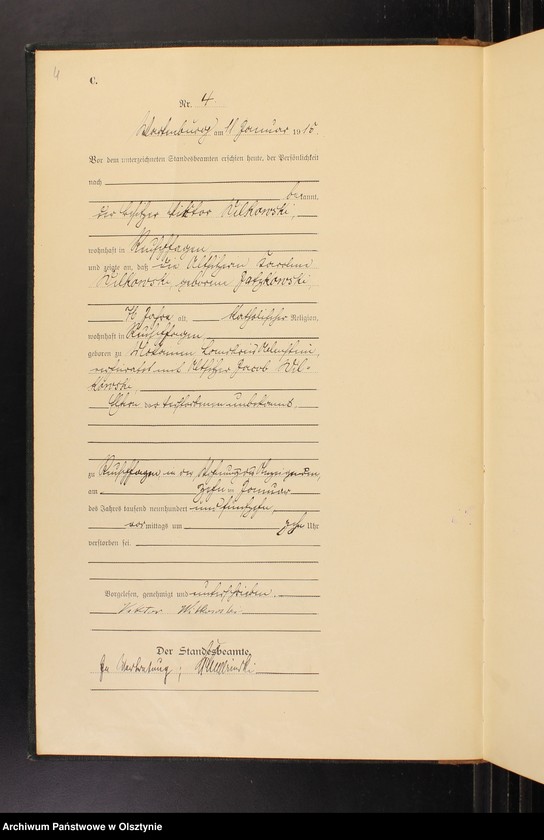 4
C.
Nr. 4.
Wartenburg am 11 Januar 1915
Vor dem unterzeichneten Standesbeamten erschien heute, der Persönlichkeit
nach
bekannt,
der Besitzer Viktor Wilkowski,
wohnhaft in
und zeigte an, daß die Altsitzerin
Wilkowski, geborene
Jahre alt, Katholischer Religion,
wohnhaft in
geboren zu Landkreis Allenstein,
verheiratet mit Altsitzer Jacob Wil-
kowski,
Eltern verstorben unbekannt.
zu in der Wohnung des Anzeigenden,
am zehn ten Januar
des Jahres tausend neunhundert und fünfzehn,
vor mittags um zehn Uhr
verstorben sei.
Vorgelesen, genehmigt und unterschrieben.
Viktor Wilkowski
Der Standesbeamte.
In Vertretung:
Archiwum Państwowe w Olsztynie